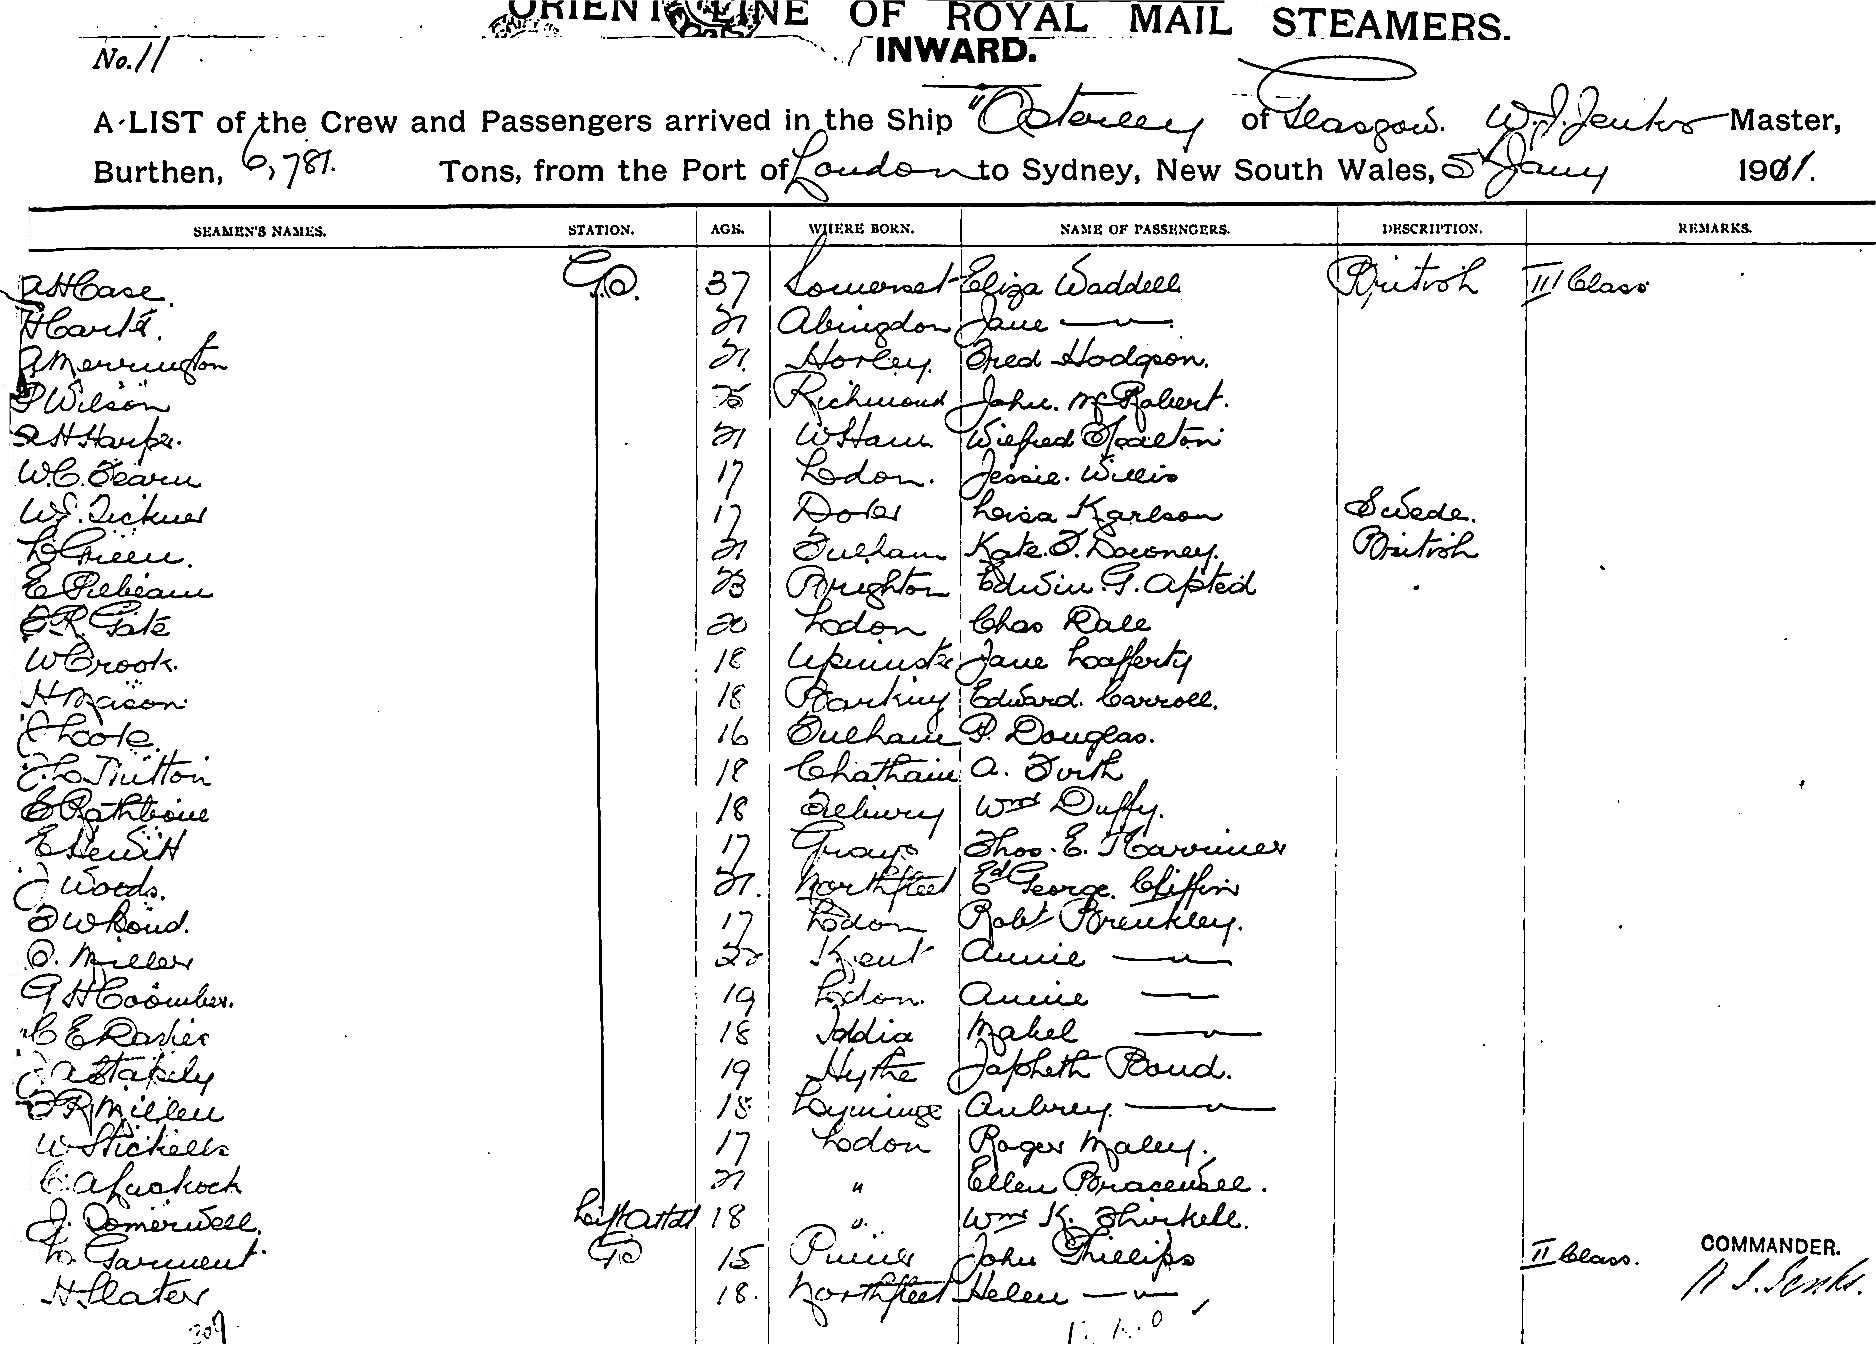 ORIENT LINE OF ROYAL MAIL STEAMERS.
INWARD.
No. 11
A LIST of the Crew and Passengers arrived in the Ship "Osterley of Glasgow. W. J. Jenks Master,
Burthen, 6,781. Tons, from the Port of London to Sydney, New South Wales, 5th Jany 1911.
SEAMEN'S NAMES. STATION. AGE. WHERE BORN. NAME OF PASSENGERS. DESCRIPTION. REMARKS.
A H Case. GS. 37 Somerset Eliza Waddell British III Class
H 21 Abingdon Jane —"—
A Merrington 21. Horley. Fred Hodgson.
P Wilson 26 Richmond John. McRobert.
A H Harper. 21 W Ham Wilfred
W. C. Fearn 17 Lodon. Jessie. Willis
W J. Tickner 17 Dover Karlson Swede.
L Green. 21 Fulham Kate. F. Downey. British
E Pilbeam 23 Brighton Edwin. G. Apted
20 Lodon Chas Dale
W Crook. 18 Upminster Jane Lafferty
H Mason 18 Barking Edward. Carroll.
16 Fulham P. Douglas.
18 Chatham A. Firth
E Rathbone 18 Tilbury Wm Duffy.
E Hewitt 17 Grays Thos. E. Marriner
J Woods. 21. Northfleet Ed George.
F W Bond. 17 Lodon Robt Brenkley.
O. Miller 22 Kent Annie —"—
G H Coomber. 19 Lodon. Annie —
C E Davies 18 India Mabel —"—
19 Hythe Japheth Bond.
F R Millen 18 Lyminge Aubrey —"—
W Stickells 17 Lodon Roger Maley.
21 " Ellen Bracewell.
J. Somerwell. Lift Attdt 18 " Wm K. Thirkell.
L. Garment GS 15 Pinner John Phillips II Class. COMMANDER.
H Slater 18. Northfleet Helen —"— W J. Jenks.
307